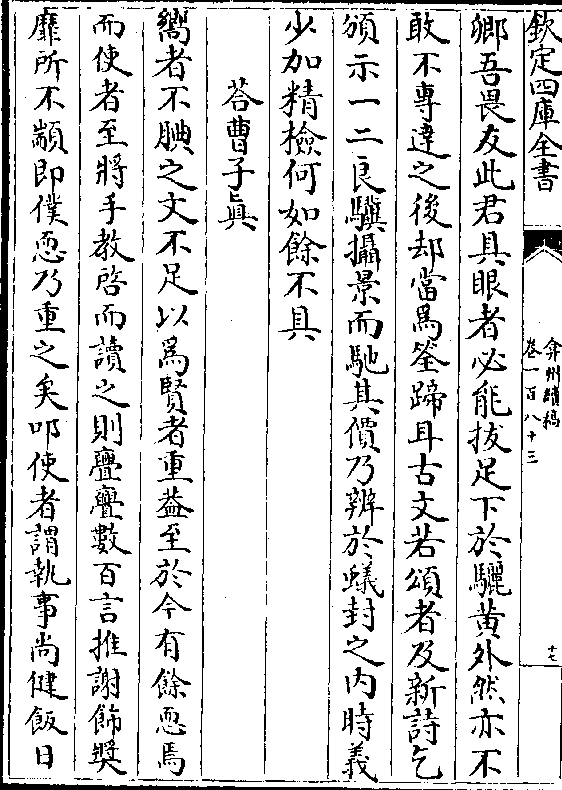 欽定四庫全書
弇州續稿
卷一百八十三
十七
卿吾畏友此君具眼者必能拔足下於驪黄外然亦不
敢不專達之後却當為筌蹄耳古文若頌者及新詩乞
頒示一二良驥攝景而馳其價乃辨於蟻封之内時義
少加精檢何如餘不具
荅曹子真
嚮者不腆之文不足以為賢者重益至於今有餘恧焉
而使者至將手教啓而讀之則亹亹數百言推謝飾奬
靡所不顓即僕恧乃重之矣叩使者謂執事尚健飯日